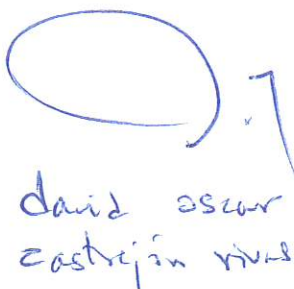 david oscar
castrejón rivas